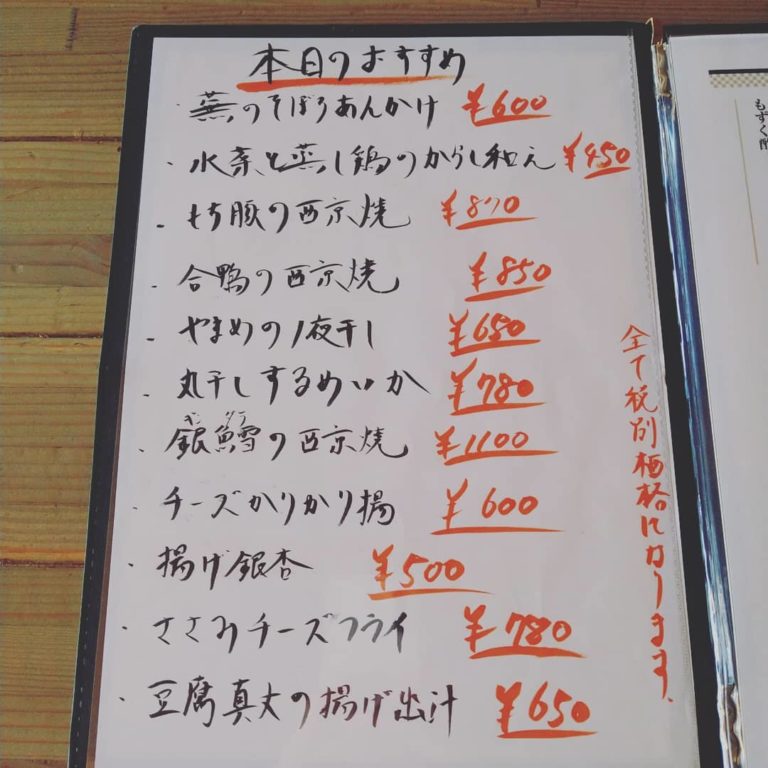 本日のおすすめ
・蕪のそぼろあんかけ ¥600
・水菜と蒸し鶏のからし和え ¥450
・もち豚の西京焼 ¥870
・合鴨の西京焼 ¥850
・やまめの1夜干し ¥650
・丸干しするめいか ¥780
・銀鱈の西京焼 ¥1100
ギンダラ
・チーズかりかり揚 ¥600
・揚げ銀杏 ¥500
・ささみチーズフライ ¥780
・豆腐真丈の揚げ出汁 ¥650
全て税別価格になります。
もずく酢